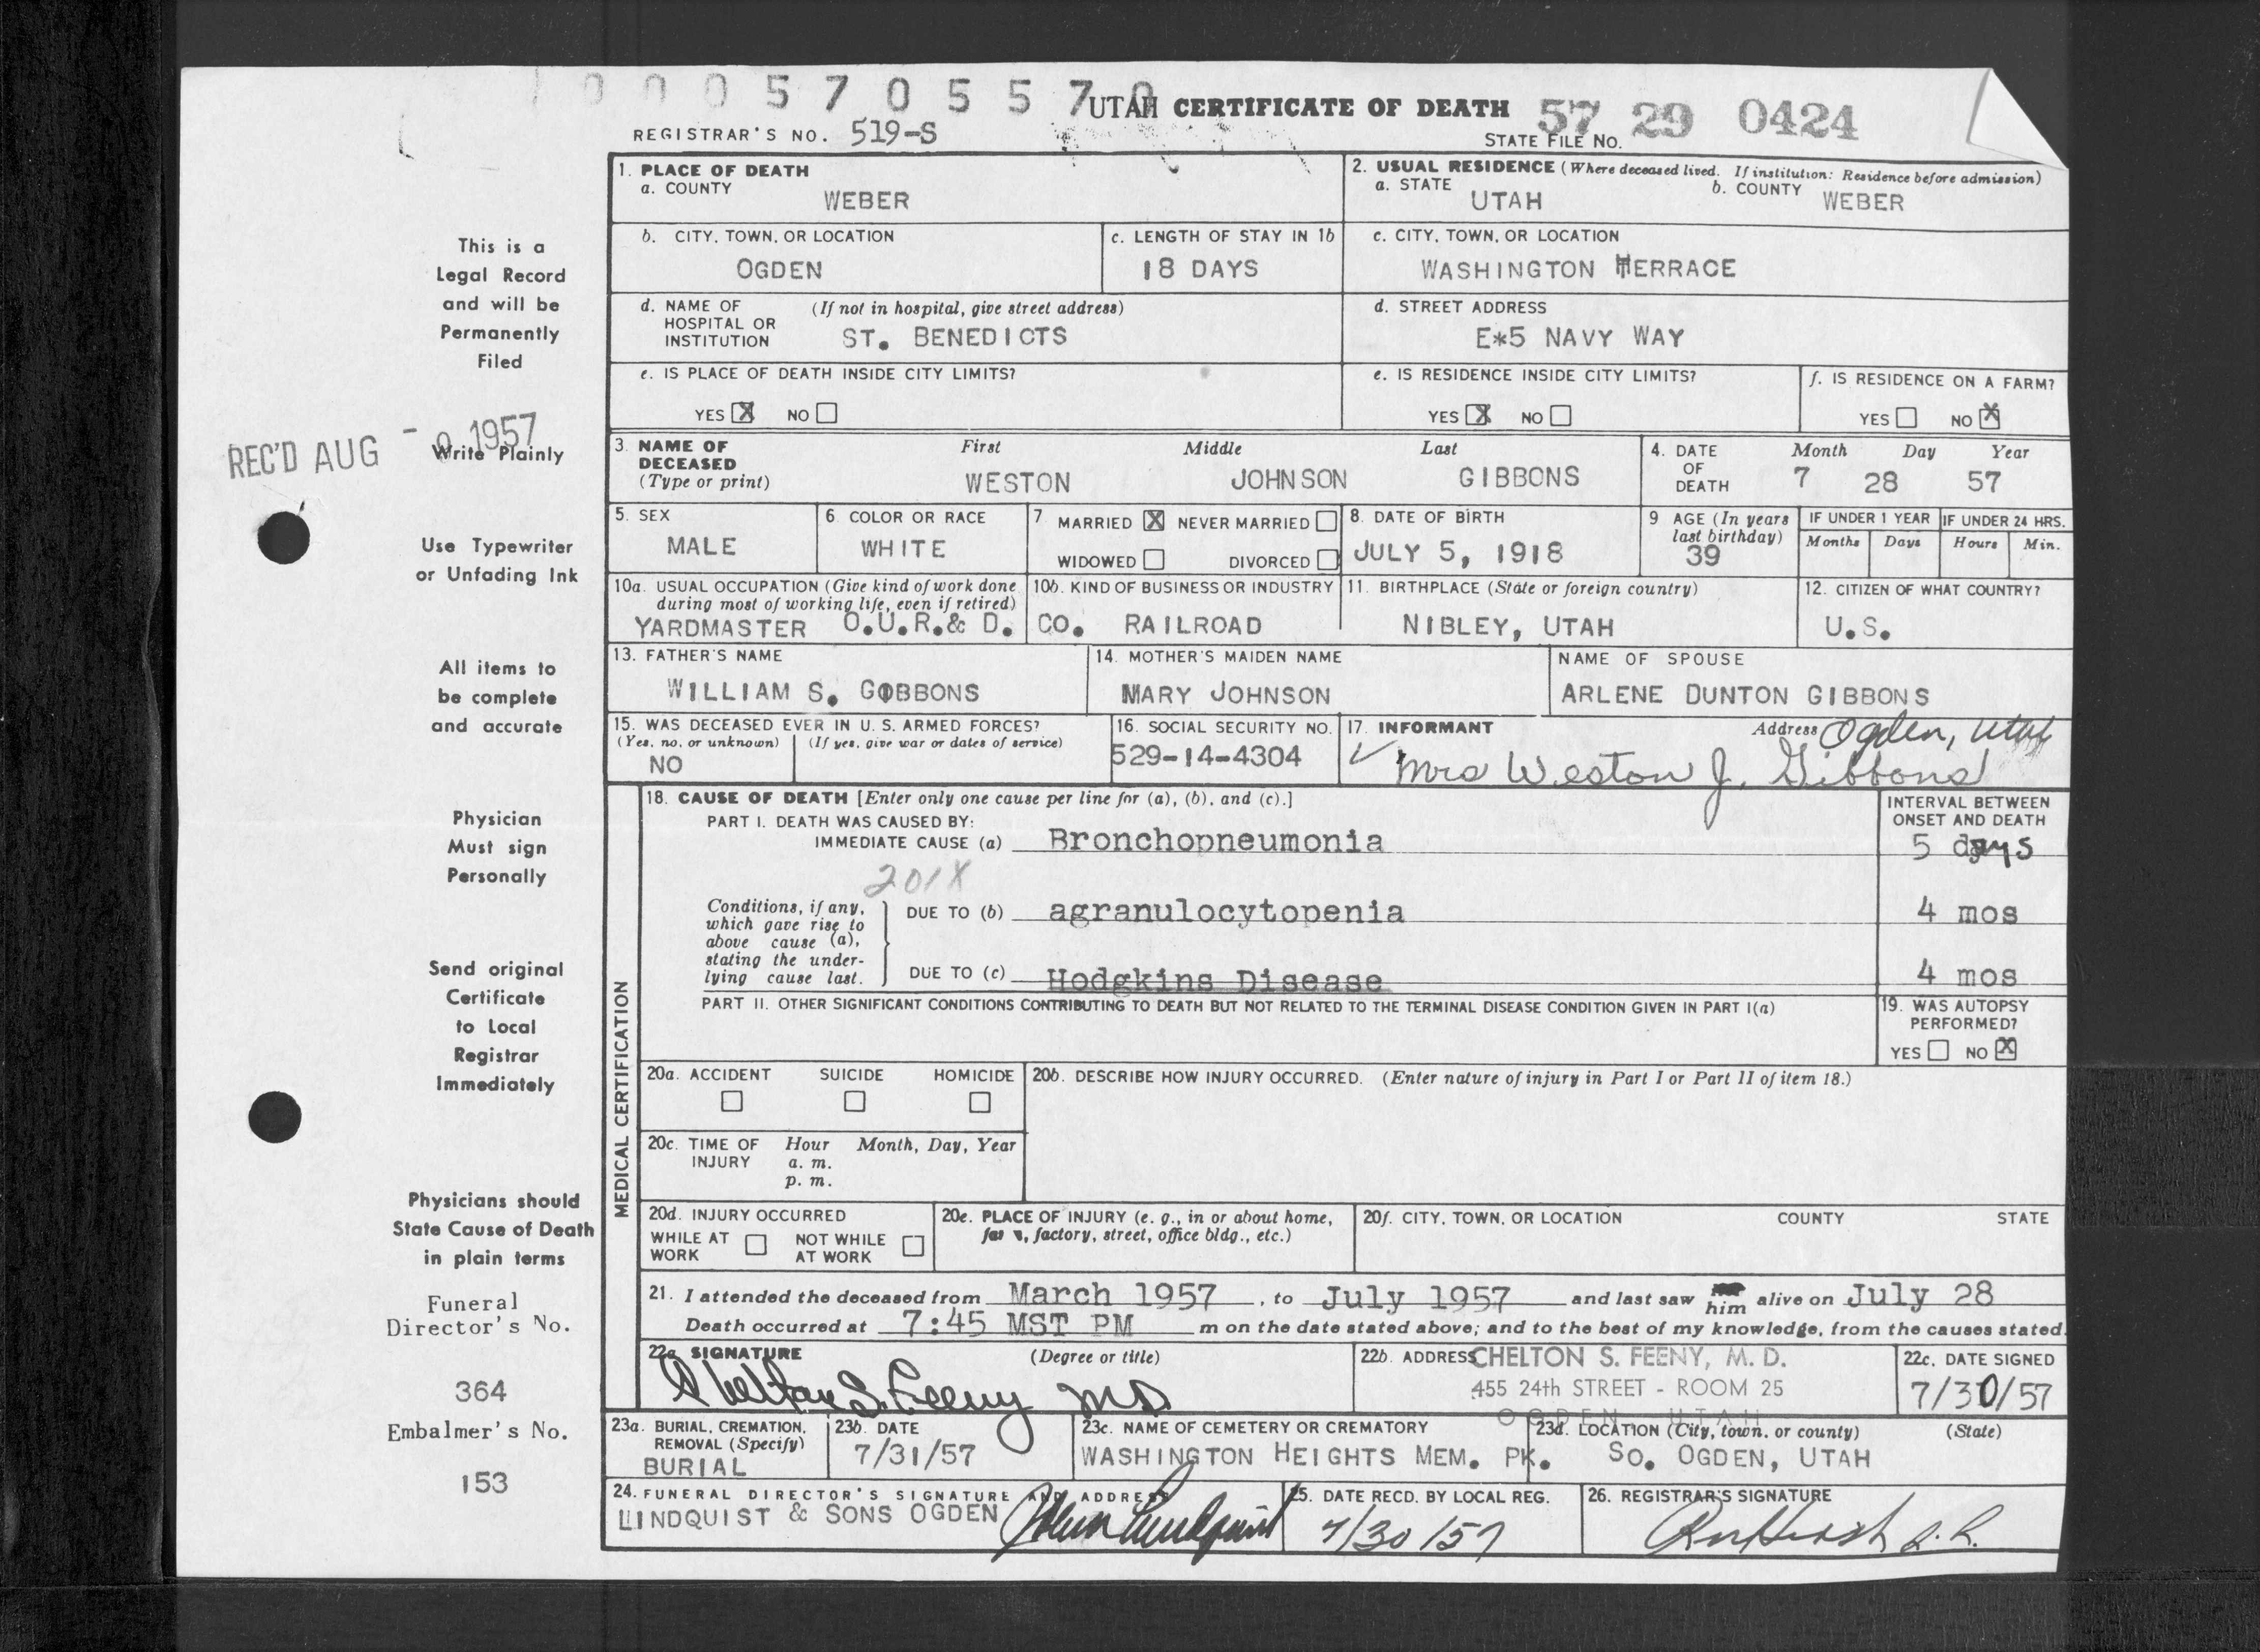 00057055 70
UTAH CERTIFICATE OF DEATH 57 29 0424
REGISTRAR'S NO. 519-S STATE FILE NO.
1. PLACE OF DEATH
a. COUNTY WEBER
2. USUAL RESIDENCE (Where deceased lived. If institution: Residence before admission)
a. STATE UTAH b. COUNTY WEBER
b. CITY, TOWN, OR LOCATION OGDEN
c. LENGTH OF STAY IN 1b 18 DAYS
c. CITY, TOWN, OR LOCATION WASHINGTON TERRACE
d. NAME OF HOSPITAL OR INSTITUTION (If not in hospital, give street address) ST. BENEDICTS
d. STREET ADDRESS E*5 NAVY WAY
e. IS PLACE OF DEATH INSIDE CITY LIMITS?
YES X NO
e. IS RESIDENCE INSIDE CITY LIMITS?
YES X NO
f. IS RESIDENCE ON A FARM?
YES NO X
3. NAME OF DECEASED (Type or print)
First Middle Last
WESTON JOHNSON GIBBONS
4. DATE OF DEATH Month Day Year
7 28 57
5. SEX MALE
6. COLOR OR RACE WHITE
7. MARRIED X NEVER MARRIED
WIDOWED DIVORCED
8. DATE OF BIRTH JULY 5, 1918
9 AGE (In years last birthday) 39
IF UNDER 1 YEAR Months Days
IF UNDER 24 HRS. Hours Min.
10a. USUAL OCCUPATION (Give kind of work done during most of working life, even if retired)
10b. KIND OF BUSINESS OR INDUSTRY
YARDMASTER O.U.R.& D. CO. RAILROAD
11. BIRTHPLACE (State or foreign country) NIBLEY, UTAH
12. CITIZEN OF WHAT COUNTRY? U.S.
13. FATHER'S NAME WILLIAM S. GIBBONS
14. MOTHER'S MAIDEN NAME MARY JOHNSON
NAME OF SPOUSE ARLENE DUNTON GIBBONS
15. WAS DECEASED EVER IN U. S. ARMED FORCES?
(Yes, no, or unknown) (If yes, give war or dates of service)
NO
16. SOCIAL SECURITY NO. 529-14-4304
17. INFORMANT Address Ogden, Utah
Mrs Weston J. Gibbons
MEDICAL CERTIFICATION
18. CAUSE OF DEATH [Enter only one cause per line for (a), (b), and (c).]
INTERVAL BETWEEN ONSET AND DEATH
PART I. DEATH WAS CAUSED BY:
IMMEDIATE CAUSE (a) Bronchopneumonia 5 days
201X
Conditions, if any, which gave rise to above cause (a), stating the underlying cause last.
DUE TO (b) agranulocytopenia 4 mos
DUE TO (c) Hodgkins Disease 4 mos
PART II. OTHER SIGNIFICANT CONDITIONS CONTRIBUTING TO DEATH BUT NOT RELATED TO THE TERMINAL DISEASE CONDITION GIVEN IN PART I(a)
19. WAS AUTOPSY PERFORMED?
YES NO X
20a. ACCIDENT SUICIDE HOMICIDE
20b. DESCRIBE HOW INJURY OCCURRED. (Enter nature of injury in Part I or Part II of item 18.)
20c. TIME OF INJURY Hour Month, Day, Year
a. m.
p. m.
20d. INJURY OCCURRED
WHILE AT WORK NOT WHILE AT WORK
20e. PLACE OF INJURY (e. g., in or about home, farm, factory, street, office bldg., etc.)
20f. CITY, TOWN, OR LOCATION COUNTY STATE
21. I attended the deceased from March 1957, to July 1957 and last saw him alive on July 28
Death occurred at 7:45 MST PM m on the date stated above; and to the best of my knowledge, from the causes stated.
22a. SIGNATURE (Degree or title)
Chelton S. Feeny MD
22b. ADDRESS CHELTON S. FEENY, M. D.
455 24th STREET - ROOM 25
OGDEN, UTAH
22c. DATE SIGNED 7/30/57
23a. BURIAL, CREMATION, REMOVAL (Specify) BURIAL
23b. DATE 7/31/57
23c. NAME OF CEMETERY OR CREMATORY WASHINGTON HEIGHTS MEM. PK.
23d. LOCATION (City, town, or county) (State) SO. OGDEN, UTAH
24. FUNERAL DIRECTOR'S SIGNATURE AND ADDRESS
LINDQUIST & SONS OGDEN
25. DATE RECD. BY LOCAL REG. 7/30/57
26. REGISTRAR'S SIGNATURE
This is a
Legal Record
and will be
Permanently
Filed
REC'D AUG 1957
Write Plainly
Use Typewriter
or Unfading Ink
All items to
be complete
and accurate
Physician
Must sign
Personally
Send original
Certificate
to Local
Registrar
Immediately
Physicians should
State Cause of Death
in plain terms
Funeral
Director's No.
364
Embalmer's No.
153